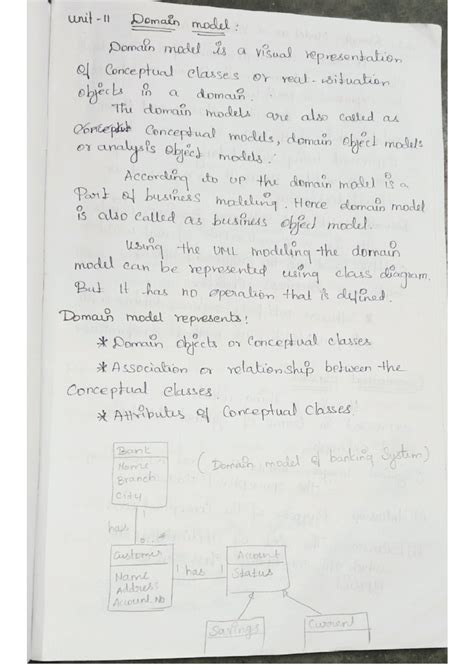 unit-II Domain model:
Domain model is a visual representation
of Conceptual classes or real-situation
objects in a domain.
The domain models are also called as
Conceptual models, domain object models
or analysis object models.
According to up the domain model is a
Part of business modeling. Hence domain model
is also called as business object model.
Using the UML modeling the domain
model can be represented using class diagram.
But It has no operation that is defined.
Domain model represents:
* Domain objects or conceptual classes
* Association or relationship between the
Conceptual classes.
* Attributes of Conceptual Classes
Bank
Name
Branch
City
(Domain model of banking System)
1
has
Customer
Name
Address
Account No
1 has 1
Account
Status
Savings
Current